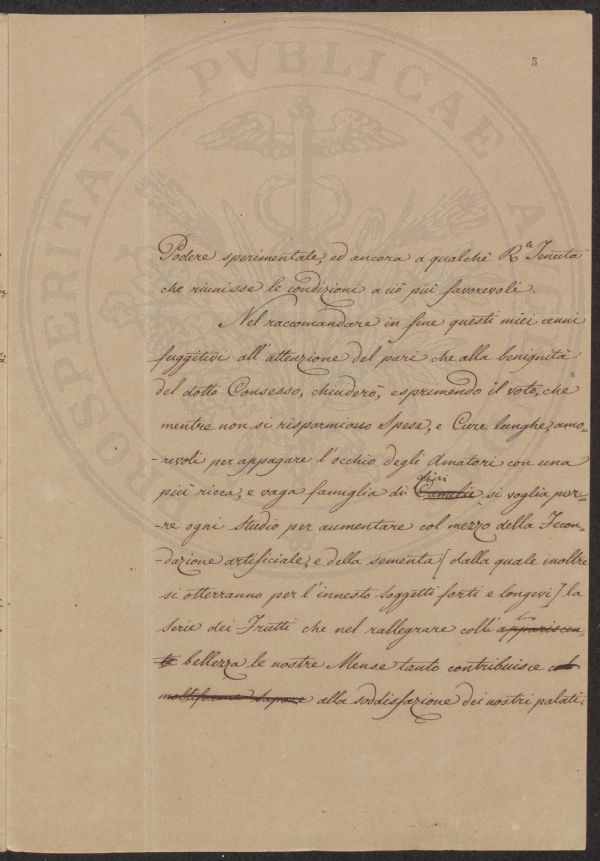 5
Podere sperimentale, ed ancora a qualche R.a Tenuta
che riunisse le condizioni a ciò più favorevoli.
Nel raccomandare in fine questi miei cenni
fuggitivi all'attenzione del pari che alla benignità
del dotto Consesso, chiuderò, esprimendo il voto, che
mentre non si risparmiano Spese, e Cure lunghe, amo-
-revoli per appagare l'occhio degli Amatori con una
fiori
più ricca, e vaga famiglia di Camelie si voglia por-
-re ogni studio per aumentare col mezzo della Fecon-
-dazione artificiale, e della sementa [dalla quale inoltre
si otterranno per l'innesto soggetti forti e longevi] la
serie dei Frutti che nel rallegrare coll'appariscen-
te bellezza le nostre Mense tanto contribuisce col
moltiforme sapore alla soddisfazione dei nostri palati.
PROSPERITATI PVBLICAE